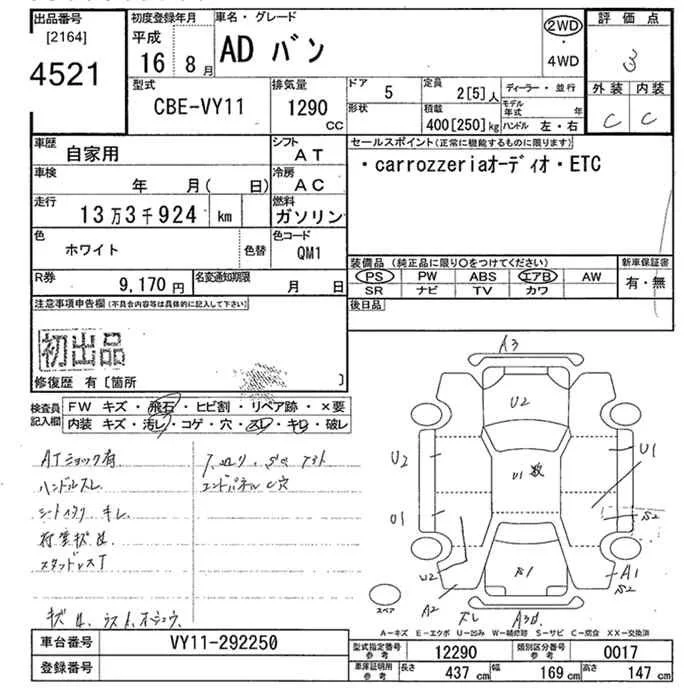 出品番号 初度登録年月 車名・グレード 評価点
[2164] 平成 ADバン 2WD
4521 16 8月 ・ 3
4WD
型式 排気量 ドア 5 定員 2[5]人 ディーラー・並行 外装 内装
CBE-VY11 1290 CC 形状 積載 400[250]kg モデル年式 年 C C
ハンドル 左・右
車歴 自家用 シフト AT セールスポイント(正常に機能するものに限ります)
車検 年 月( 日) 冷房 AC ・carrozzeriaオーディオ・ETC
走行 13万3千924 km 燃料 ガソリン
色 ホワイト 色替 色コード QM1
装備品(純正品に限り○をつけてください) 新車保証書
R券 9,170円 名変通知期限 月 日 PS PW ABS エアB AW 有・無
SR ナビ TV カワ
注意事項申告欄(不具合内容等は具体的に記入して下さい) 後日品
初出品
修復歴 有〔箇所 〕
検査員記入欄 FW キズ・飛石・ヒビ割・リペア跡・×要
内装 キズ・汚レ・コゲ・穴・スレ・キレ・破レ
A3
U2
ATショック有
ハンドルスレ エンドパネルC穴
U2 U1 数 U1
シートイタリ キレ
U1 S2
スタッドレスT
U2 S1 A1
A2 S2
スペア
A-キズ E-エクボ U-凹み W-補修跡 S-サビ C-腐食 XX-交換済
車台番号 VY11-292250 型式指定番号 参考 12290 類別区分番号 参考 0017
登録番号 車庫証明用 参考 長さ 437 cm 幅 169 cm 高さ 147 cm